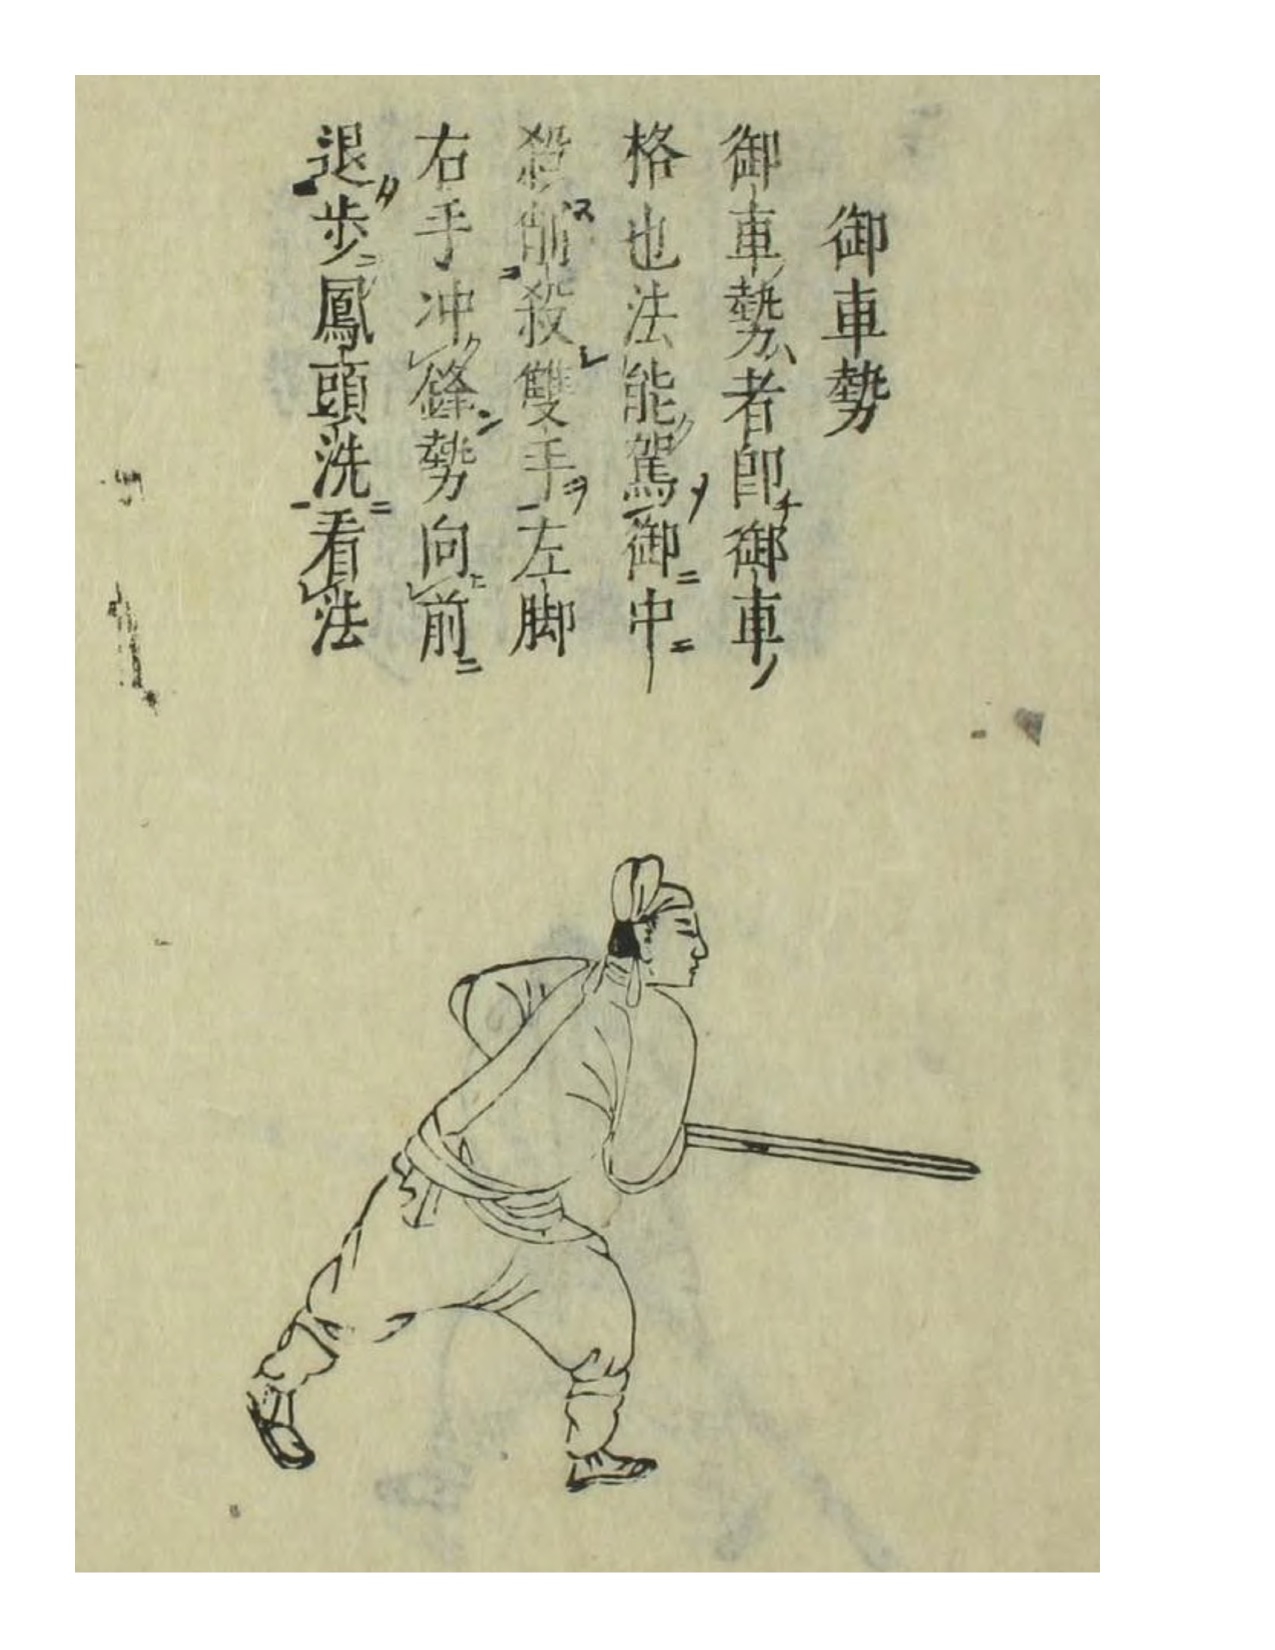 御車勢
御車勢者卽御車
格也法能駕御中
殺削殺雙手左脚
右手冲鋒勢向前
退歩鳳頭洗看法